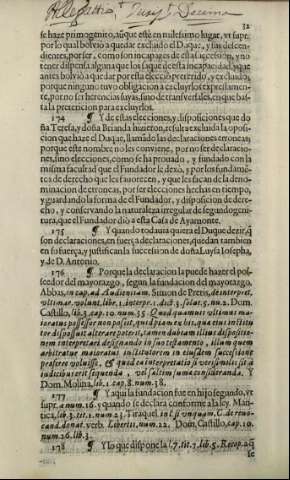 32
se haze primogenito, aũque estè en milesimo lugar, vt supr.
por lo qual bolviò a quedar excluido el Duque, y sus descendientes,
por ser, como son incapaces de esta succession, y no
tener dispensa alguna que los saque de esta incapacidad, que
antes bolviò a quedar por esta elecciõ preterido, y excluido,
porque ninguno tuvo obligacion a excluyrlos expressamente,
por no ser herencias suyas, sino de transversales, en que basta
la pretericion para excluyrlos.
174 ¶ Y de estas elecciones, y disposiciones que do
ña Teresa, y doña Brianda hizieron, resulta excluida la oposicion
que haze el Duque, llamãdo las declaraciones erroneas;
porque este nombre no les conviene, por no ser declaraciones,
sino elecciones, como se ha provado, y fundado con la
misma facultad que el Fundador le dexò, y por los fundamẽtos
de derecho que les favorecen, y que les sacan de la denominacion
de erroneas, por ser elecciones hechas en tiempo,
y guardando la forma de el Fundador, y disposicion de derecho,
y conservando la naturaleza irregular de segundogenitura,
que el Fundador diò a esta Casa de Ayamonte.
175 ¶ Y quando todavia quiera el Duque dezir, q̃
son declaraciones, en fuerça declaraciones, quedan tambien
en su fuerça, y justifican la succession de doña Luysa Iosepha,
y de D. Antonio.
176 ¶ Porque la declaracion la puede hazer el posseedor
del mayorazgo, segun la fundacion del mayorazgo.
Abbas, in cap. ad Audientiam. Simon de Pretis, de interpret.
vltimar. volunt. libr. 1. interpr. 1. dict. 3. solut. 5. nu. 2. Dom.
Castillo, lib. 3. cap. 10. num. 35. Quod quamuis vltimus maioratus
possessor non possit, quidpiam ex his, quæ eius institutor
disposuit alterare poterit, tamen dubiam illius dispositionem
interpretari designando in suo testamento, illum quem
arbitratur maioratus institutorem in eiusdem successione
præferre voluisse. & quod ea interpretatio si verisimilis sit à
iudicibus erit sequenda, vel saltim summè consideranda. Y
Dom. Molina, lib. 1. cap. 8. num. 38.
177 ¶ Y aqui la fundacion fue en hijo segundo, vt
supr. a num. 16. y quando se declara conforme a la ley. Mantica,
lib. 3. tit. 1. num. 23. Tiraquel. in l. si vnquam. C. de reuocand.
donat. verb. Libertis, num. 22. Dom. Castillo, cap. 10.
num. 26. lib. 3.
178 ¶ Y lo que dispone la l. 7. tit. 7. lib. 5. Recop. aq̃
se